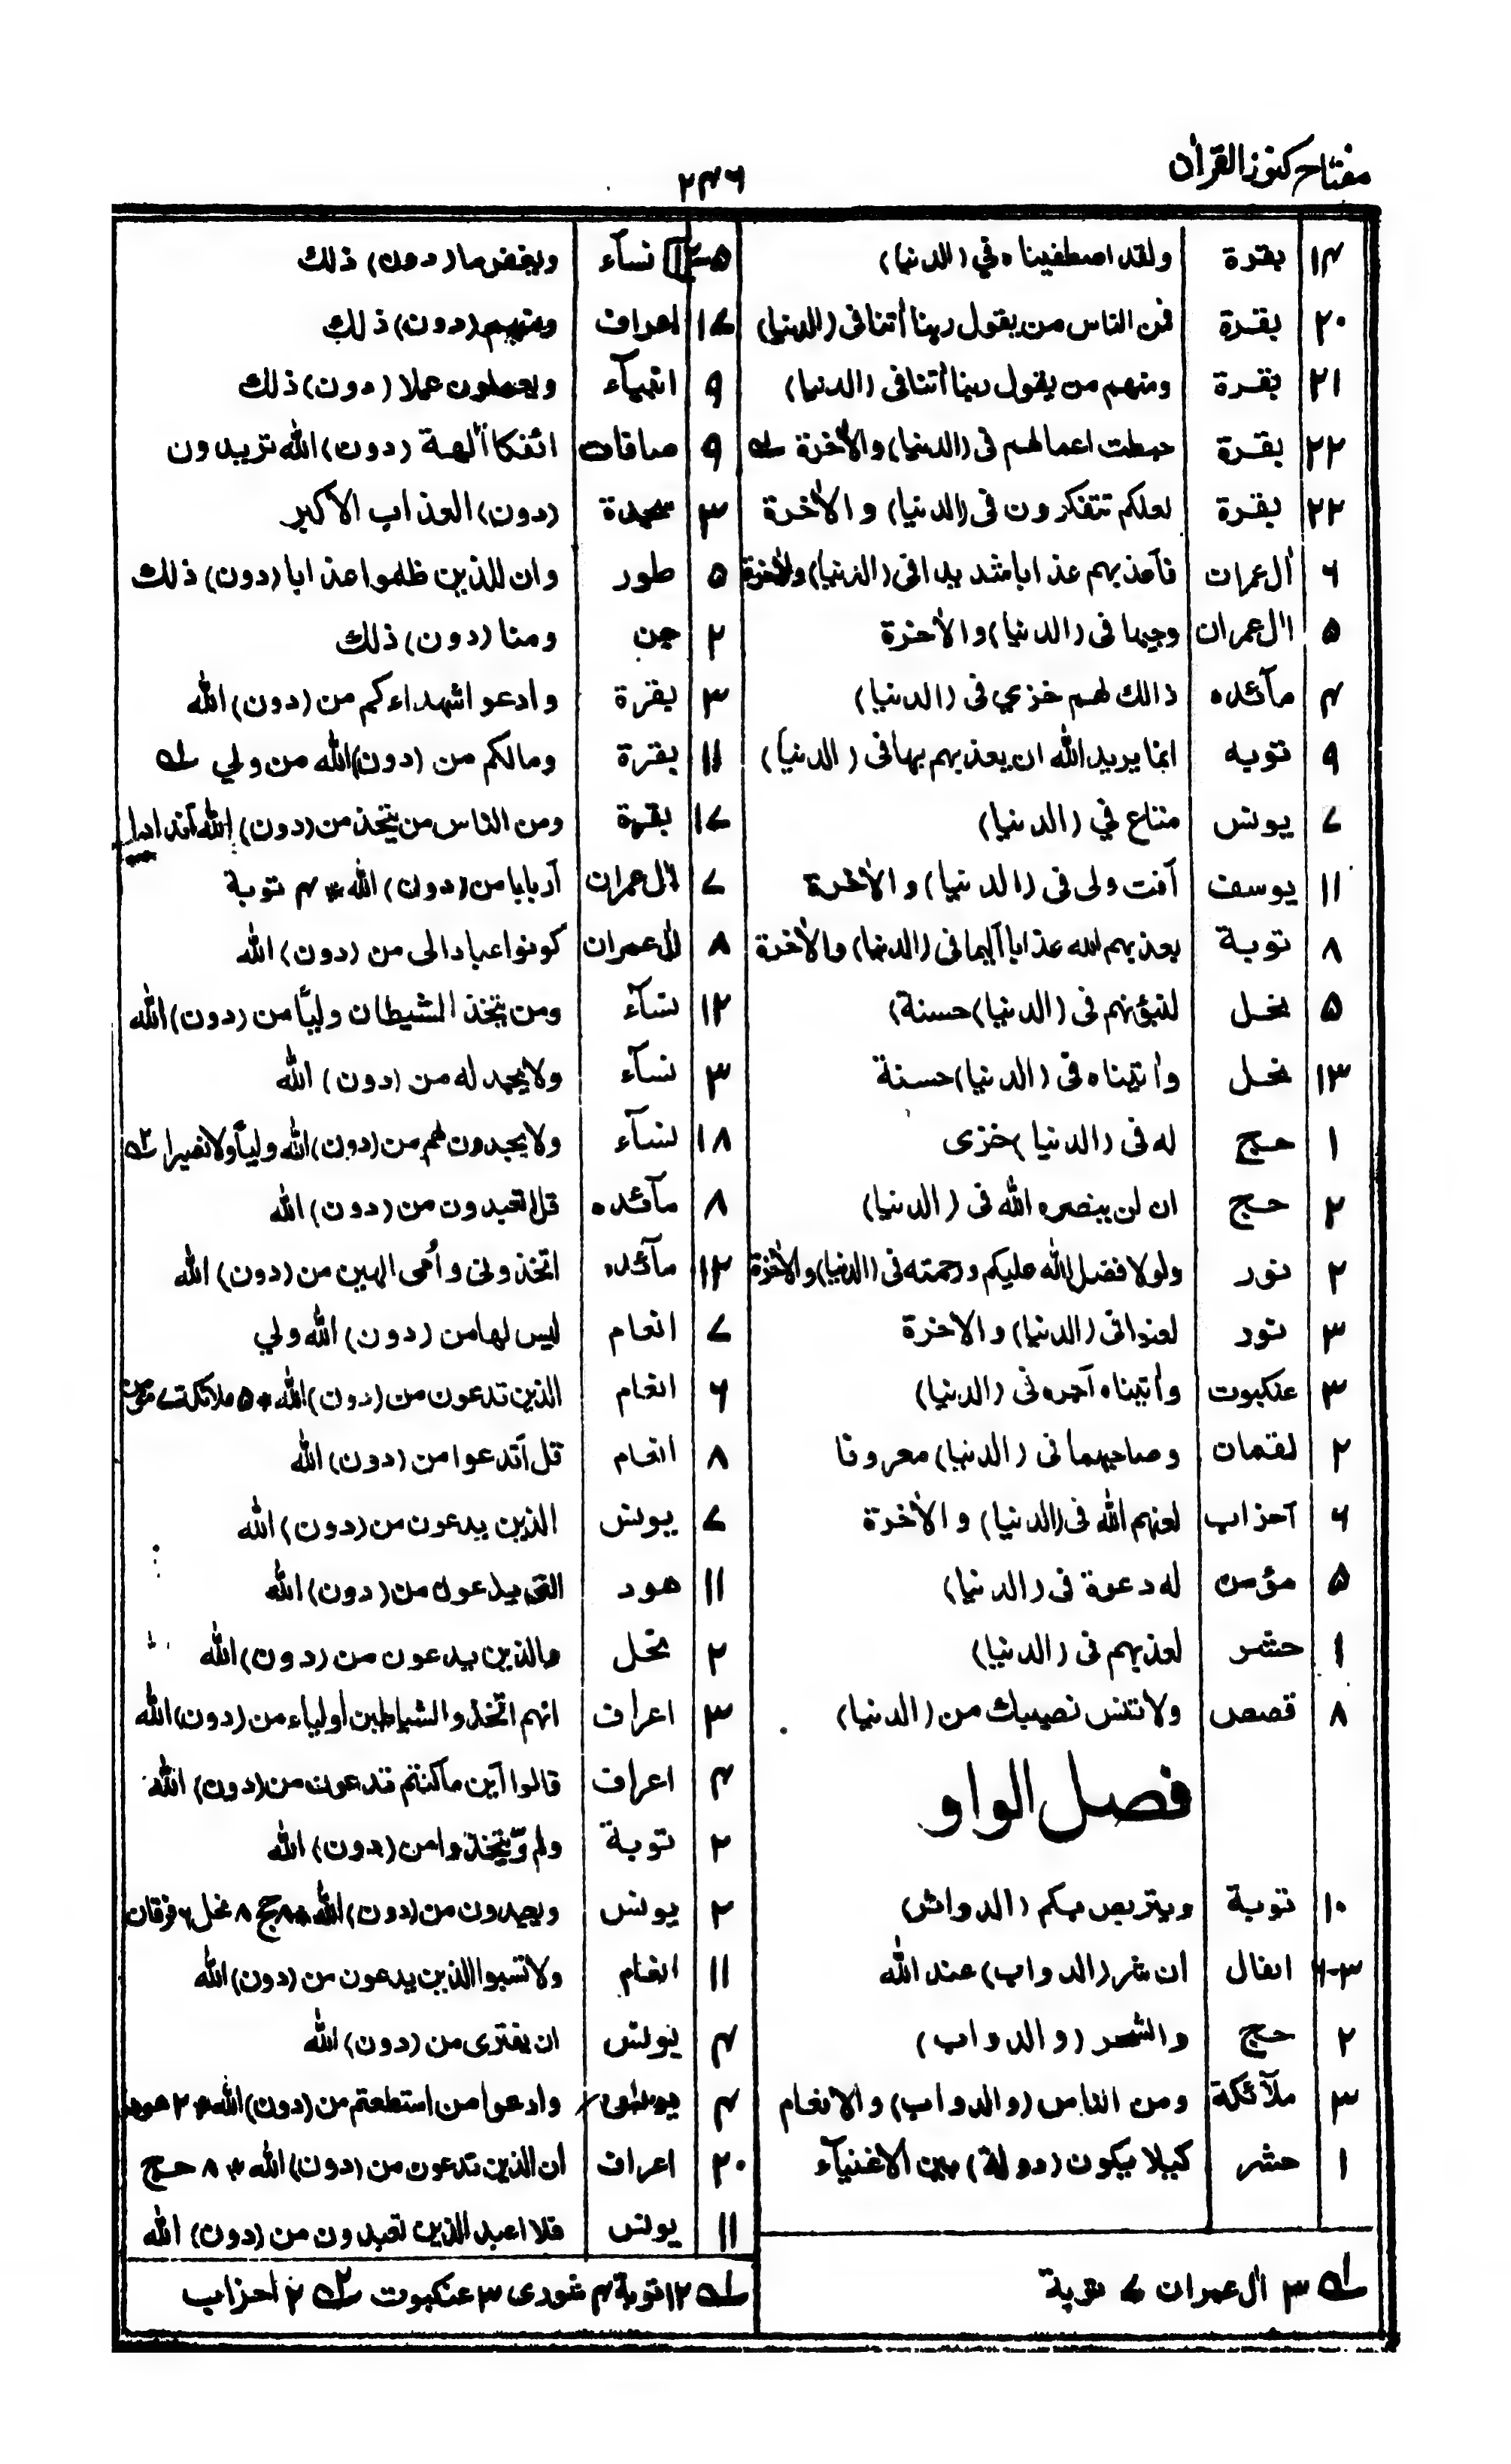 مفتاح كنوز القرأن
۲۴۶
۱۴ بقرة ولقد اصطفيناه في (الدنيا)
۲۰ بقرة فمن الناس من يقول ربنا أتنا فى (الدنيا)
۲۱ بقرة ومنهم من يقول ربنا أتنا فى (الدنيا)
۲۲ بقرة حبطت اعمالهم فى (الدنيا) والأخرة ل
۲۲ بقرة لعلكم تتفكرون فى (الدنيا) والأخرة
۶ أل عمران فأعذبهم عذابا شديدا فى (الدنيا) والأخرة
۵ أل عمران وجيها فى (الدنيا) والأخرة
۴ مآئده ذالك لهم خزي فى (الدنيا)
۹ توبه انما يريد الله ان يعذبهم بها فى (الدنيا)
۷ يونس متاع في (الدنيا)
۱۱ يوسف أنت ولى فى (الدنيا) والأخرة
۸ توبة يعذبهم الله عذابا أليما فى (الدنيا) والأخرة
۵ نحل لنبؤنهم فى (الدنيا) حسنة)
۱۳ نحل وأتيناه فى (الدنيا) حسنة
۱ حج له فى (الدنيا) خزى
۲ حج ان لن ينصره الله فى (الدنيا)
۲ نور ولولا فضل الله عليكم ورحمته فى (الدنيا) والأخرة
۳ نور لعنوا فى (الدنيا) والاخرة
۳ عنكبوت وأتيناه أجره فى (الدنيا)
۲ لقمان وصاحبهما فى (الدنيا) معروفا
۶ أحزاب لعنهم الله فى (الدنيا) والأخرة
۵ مؤمن له دعوة فى (الدنيا)
۱ حشر لعذبهم فى (الدنيا)
۸ قصص ولا تنس نصيبك من (الدنيا)
فصل الواو
۱۰ توبة ويتربص بكم (الدوائر)
۳-۶ انفال ان شر (الدواب) عند الله
۲ حج والشجر (والدواب)
۳ ملآئكة ومن الناس (والدواب) والانعام
۱ حشر كيلا يكون (دولة) بين الاغنيآء
له ۳ أل عمران ۷ توبة
نسآء ويغفر ما (دون) ذلك
۱۷ اعراف ومنهم (دون) ذلك
۹ انبيآء ويعملون عملا (دون) ذلك
۹ صافات ائفكا ألهة (دون) الله تريدون
۳ سجدة (دون) العذاب الأكبر
۵ طور وان للذين ظلموا عذابا (دون) ذلك
۲ جن ومنا (دون) ذلك
۳ بقرة وادعوا شهداءكم من (دون) الله
۱۱ بقرة ومالكم من (دون) الله من ولي له
۱۷ بقرة ومن الناس من يتخذ من (دون) الله أندادا
۷ أل عمران أربابا من (دون) الله * ۴ توبة
۸ أل عمران كونوا عبادا لى من (دون) الله
۱۲ نسآء ومن يتخذ الشيطان وليًّا من (دون) الله
۳ نسآء ولا يجد له من (دون) الله
۱۸ نسآء ولا يجدون لهم من (دون) الله وليًا ولا نصيرا
۸ مآئده قل اتعبدون من (دون) الله
۱۲ مآئده اتخذونى وأمى الهين من (دون) الله
۷ انعام ليس لها من (دون) الله ولي
۶ انعام الذين تدعون من (دون) الله * ۵ ملائكة ۷ مؤمن
۸ انعام قل أندعوا من (دون) الله
۷ يونس الذين يدعون من (دون) الله
۱۱ هود التى يدعون من (دون) الله
۲ نحل والذين يدعون من (دون) الله
۳ اعراف انهم اتخذوا الشياطين أولياء من (دون) الله
۴ اعراف قالوا أين ما كنتم تدعون من (دون) الله
۲ توبة ولم يتخذوا من (دون) الله
۲ يونس ويعبدون من (دون) الله * ۸ حج ۸ نحل ۶ فرقان
۱۱ انعام ولا تسبوا الذين يدعون من (دون) الله
۴ يونس ان يفترى من (دون) الله
۴ يونس وادعوا من استطعتم من (دون) الله * ۲ هود
۲۰ اعراف ان الذين تدعون من (دون) الله * ۸ حج
۱۱ يونس فلا اعبد الذين تعبدون من (دون) الله
له ۱۲ توبة ۴ شورى ۳ عنكبوت ۲ احزاب